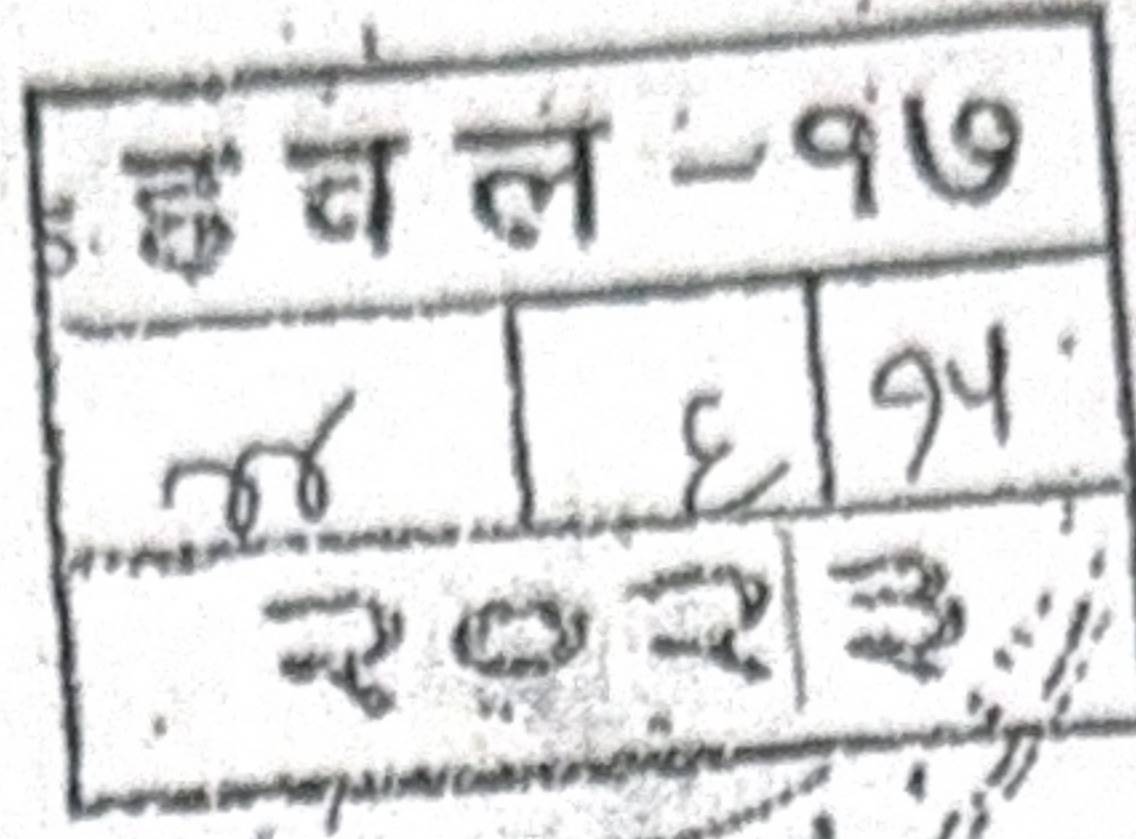 हवल-१७
४४ ६ १५
२०२३